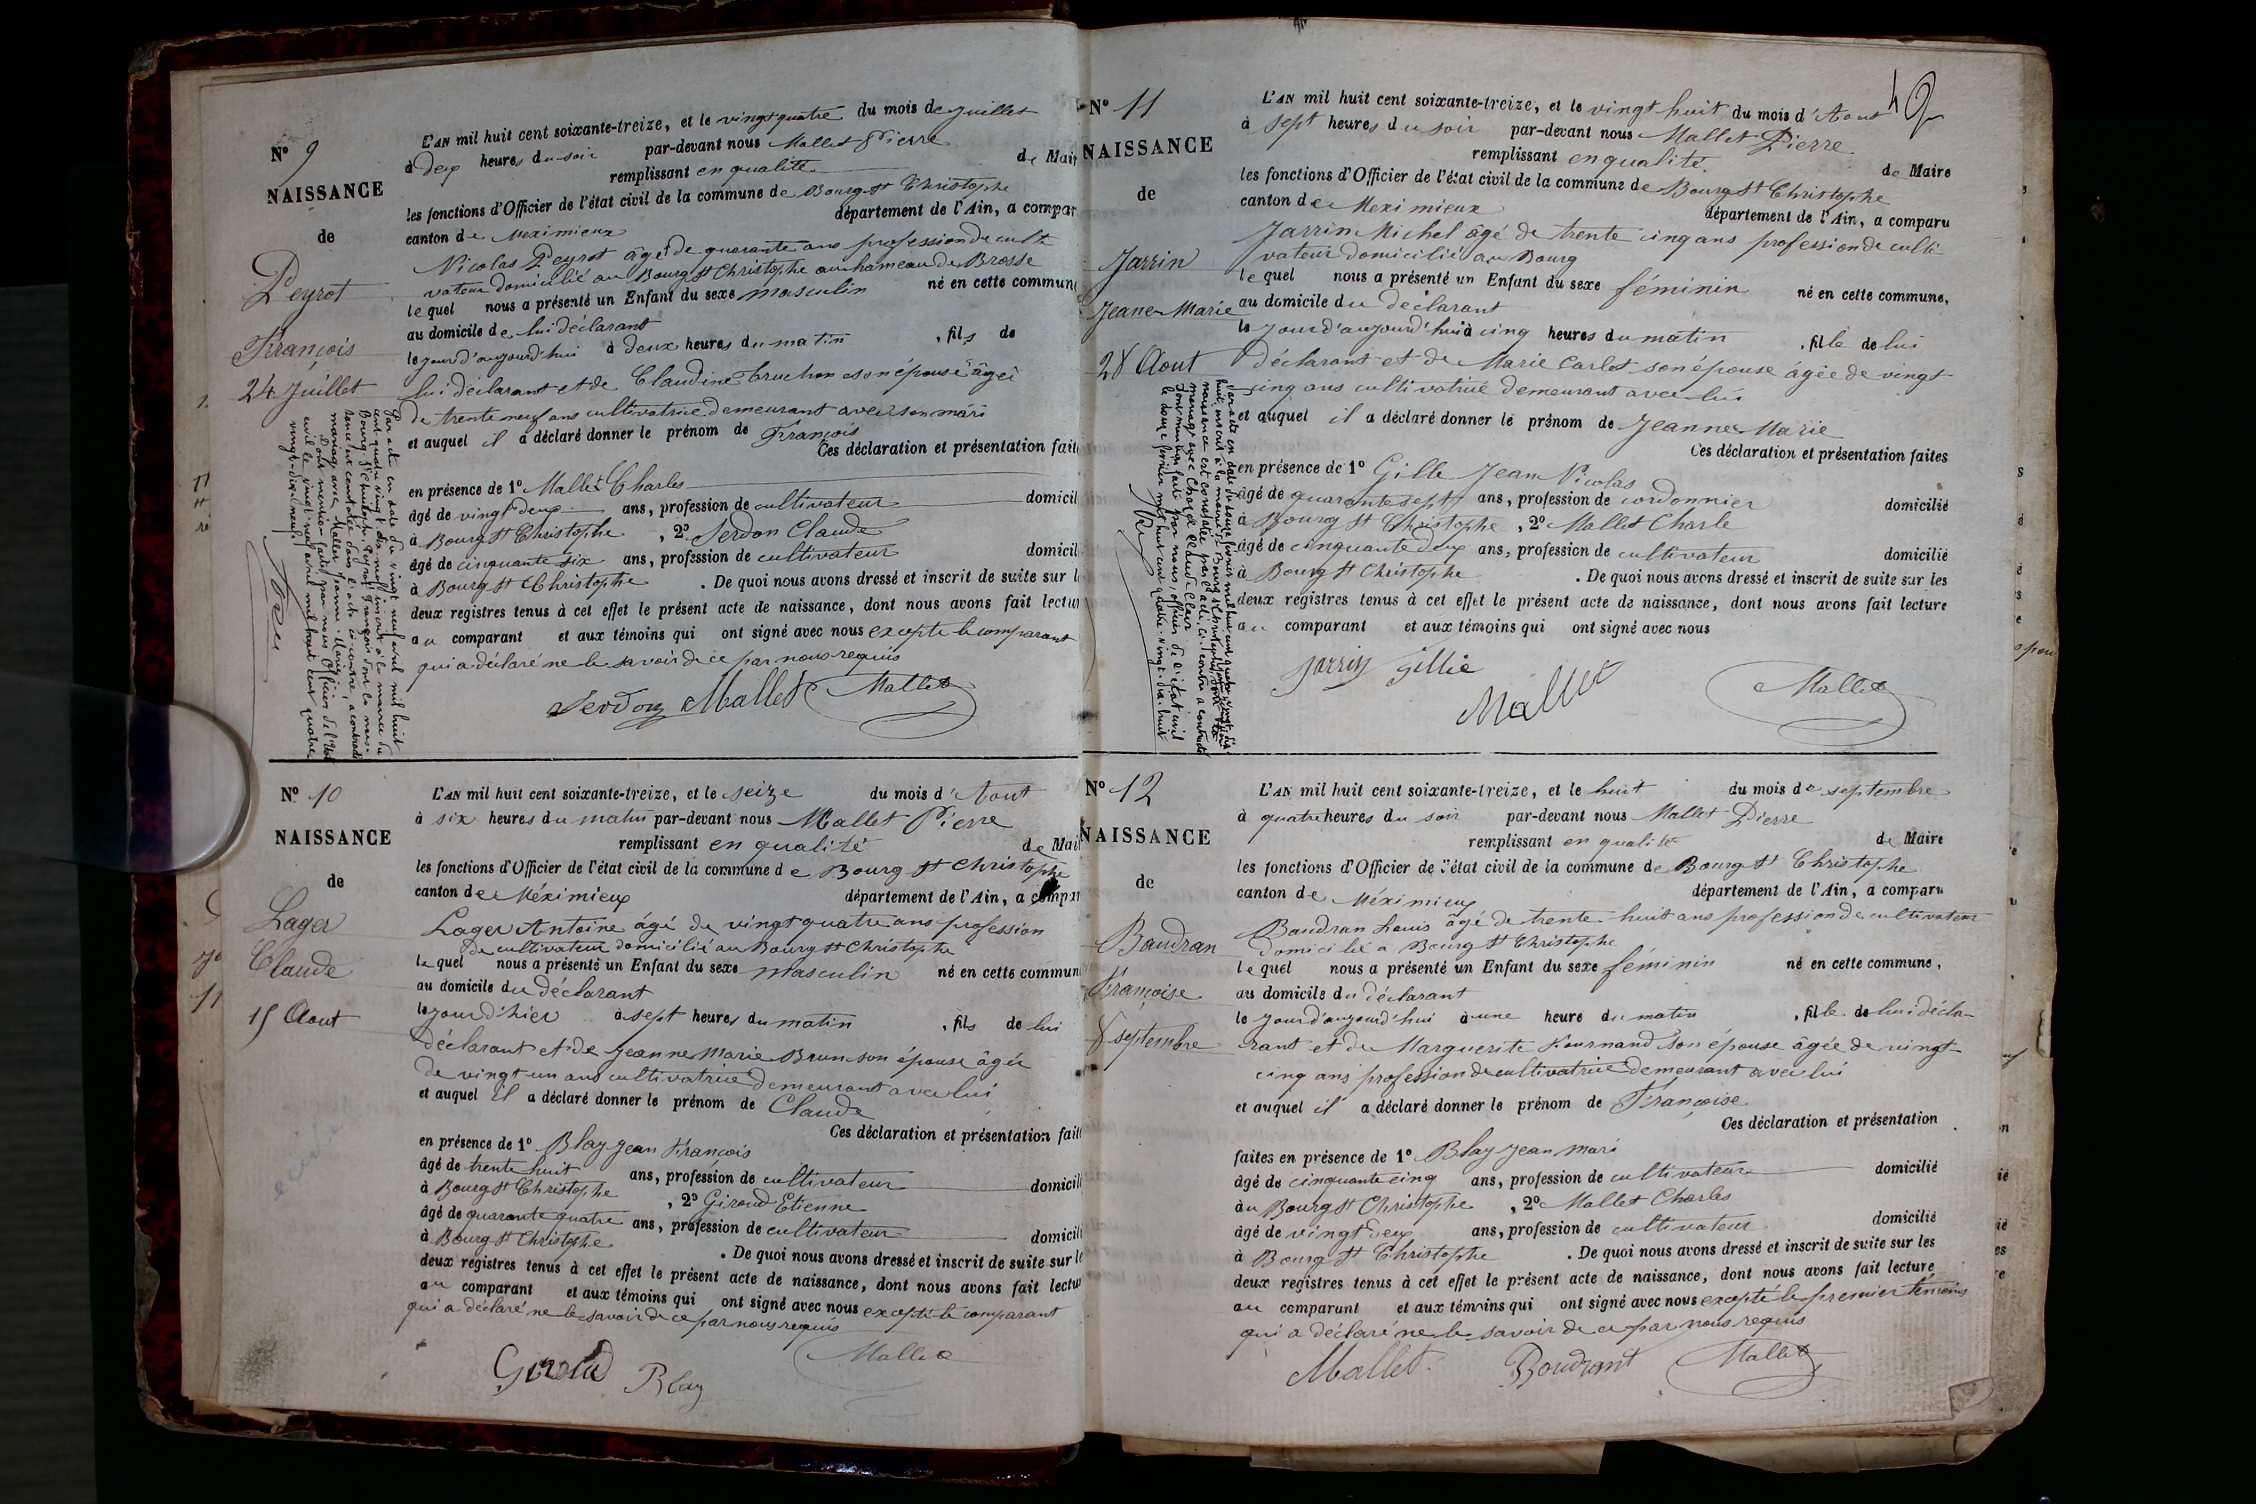 N° 9
NAISSANCE
de
Peyrot
François
24 Juillet
L'AN mil huit cent soixante-treize, et le vingt quatre du mois de Juillet
à deux heures du soir par-devant nous Mallet Pierre
remplissant en qualité de Mair
les fonctions d'Officier de l'état civil de la commune de Bourg St Christophe
canton de Meximieux département de l'Ain, a compar
Nicolas Peyrot âgé de quarante ans profession de culti
vateur domicilié au Bourg St Christophe au hameau de Brosse
le quel nous a présenté un Enfant du sexe masculin né en cette commune
au domicile de lui déclarant
le jour d'aujourd'hui à deux heures du matin , fils de
lui déclarant et de Claudine Truchon son épouse âgée
de trente neuf ans cultivatrice demeurant avec son mari
et auquel il a déclaré donner le prénom de François
Ces déclaration et présentation faite
en présence de 1° Mallet Charles
âgé de vingt deux ans, profession de cultivateur domicil
à Bourg St Christophe , 2° Serdon Claude
âgé de cinquante six ans, profession de cultivateur domicil
à Bourg St Christophe . De quoi nous avons dressé et inscrit de suite sur l
deux registres tenus à cet effet le présent acte de naissance, dont nous avons fait lectur
au comparant et aux témoins qui ont signé avec nous excepté le comparant
qui a déclaré ne le savoir de ce par nous requis
Serdon Mallet Mallet
Par acte en date du vingt neuf avril mil huit
cent quatre vingt dix neuf inscrit à la mairie du
Bourg St Christophe, Peyrot François dont la nais-
sance est constatée dans l'acte ci-contre, a contracté
mariage avec Mallet Jeanne-Marie
Dont mention faite par nous Officier de l'état
civil le vingt neuf avril mil huit cent quatre
vingt-dix-neuf.
N° 10
NAISSANCE
de
Lager
Claude
15 Aout
L'AN mil huit cent soixante-treize, et le seize du mois d'Aout
à six heures du matin par-devant nous Mallet Pierre
remplissant en qualité de Mai
les fonctions d'Officier de l'état civil de la commune de Bourg St Christophe
canton de Méximieux département de l'Ain, a compar
Lager Antoine âgé de vingt quatre ans profession
de cultivateur domicilié au Bourg St Christophe
le quel nous a présenté un Enfant du sexe masculin né en cette commun
au domicile du déclarant
le jour d'hier à sept heures du matin , fils de lui
déclarant et de Jeanne Marie Brun son épouse âgée
de vingt un ans cultivatrice demeurant avec lui
et auquel il a déclaré donner le prénom de Claude
Ces déclaration et présentation fait
en présence de 1° Blay Jean François
âgé de trente huit ans, profession de cultivateur domicili
à Bourg St Christophe , 2° Giroud Etienne
âgé de quarante quatre ans, profession de cultivateur domicili
à Bourg St Christophe . De quoi nous avons dressé et inscrit de suite sur le
deux registres tenus à cet effet le présent acte de naissance, dont nous avons fait lectu
au comparant et aux témoins qui ont signé avec nous excepté le comparant
qui a déclaré ne le savoir de ce par nous requis
Giroud Blay Mallet
N° 11
NAISSANCE
de
Jarrin
Jeane-Marie
28 Aout
L'AN mil huit cent soixante-treize, et le vingt huit du mois d'Aout
à sept heures du soir par-devant nous Mallet Pierre
remplissant en qualité de Maire
les fonctions d'Officier de l'état civil de la commune de Bourg St Christophe
canton de Meximieux département de l'Ain, a comparu
Jarrin Michel âgé de trente cinq ans profession de culti
vateur domicilié au Bourg
le quel nous a présenté un Enfant du sexe féminin né en cette commune,
au domicile du déclarant
le jour d'aujourd'hui à cinq heures du matin , fille de lui
déclarant et de Marie Carlot son épouse âgée de vingt-
cinq ans cultivatrice demeurant avec lui
et auquel il a déclaré donner le prénom de Jeanne Marie
Ces déclaration et présentation faites
en présence de 1° Gille Jean Nicolas
âgé de quarante sept ans, profession de cordonnier domicilié
à Bourg St Christophe , 2° Mallet Charle
âgé de cinquante deux ans, profession de cultivateur domicilié
à Bourg St Christophe . De quoi nous avons dressé et inscrit de suite sur les
deux registres tenus à cet effet le présent acte de naissance, dont nous avons fait lecture
au comparant et aux témoins qui ont signé avec nous
Jarrin Gille
Mallet Mallet
Par acte en date du douze février mil huit cent quatre vingt dix
huit inscrit à la mairie de Bourg St Christophe,
naissance est constatée par l'acte ci-contre a contracté
mariage avec
Dont mention faite par nous officier de l'état civil
le douze février mil huit cent quatre-vingt-dix-huit
N° 12
NAISSANCE
de
Baudran
Françoise
8 septembre
L'AN mil huit cent soixante-treize, et le huit du mois de septembre
à quatre heures du soir par-devant nous Mallet Pierre
remplissant en qualité de Maire
les fonctions d'Officier de l'état civil de la commune de Bourg St Christophe
canton de Méximieux département de l'Ain, a comparu
Baudran Louis âgé de trente-huit ans profession de cultivateur
domicilié a Bourg St Christophe
le quel nous a présenté un Enfant du sexe féminin né en cette commune,
au domicile du déclarant
le jour d'aujourd'hui à une heure du matin , fille de lui décla-
rant et de Marguerite Fournand son épouse âgée de vingt-
cinq ans profession de cultivatrice demeurant avec lui
et auquel il a déclaré donner le prénom de Françoise
Ces déclaration et présentation
faites en présence de 1° Blay Jean Mari
âgé de cinquante cinq ans, profession de cultivateur domicilié
au Bourg St Christophe , 2° Mallet Charles
âgé de vingt deux ans, profession de cultivateur domicilié
à Bourg St Christophe . De quoi nous avons dressé et inscrit de suite sur les
deux registres tenus à cet effet le présent acte de naissance, dont nous avons fait lecture
au comparant et aux témoins qui ont signé avec nous excepté le premier témoins
qui a déclaré ne le savoir de ce par nous requis
Mallet Boudrant Mallet